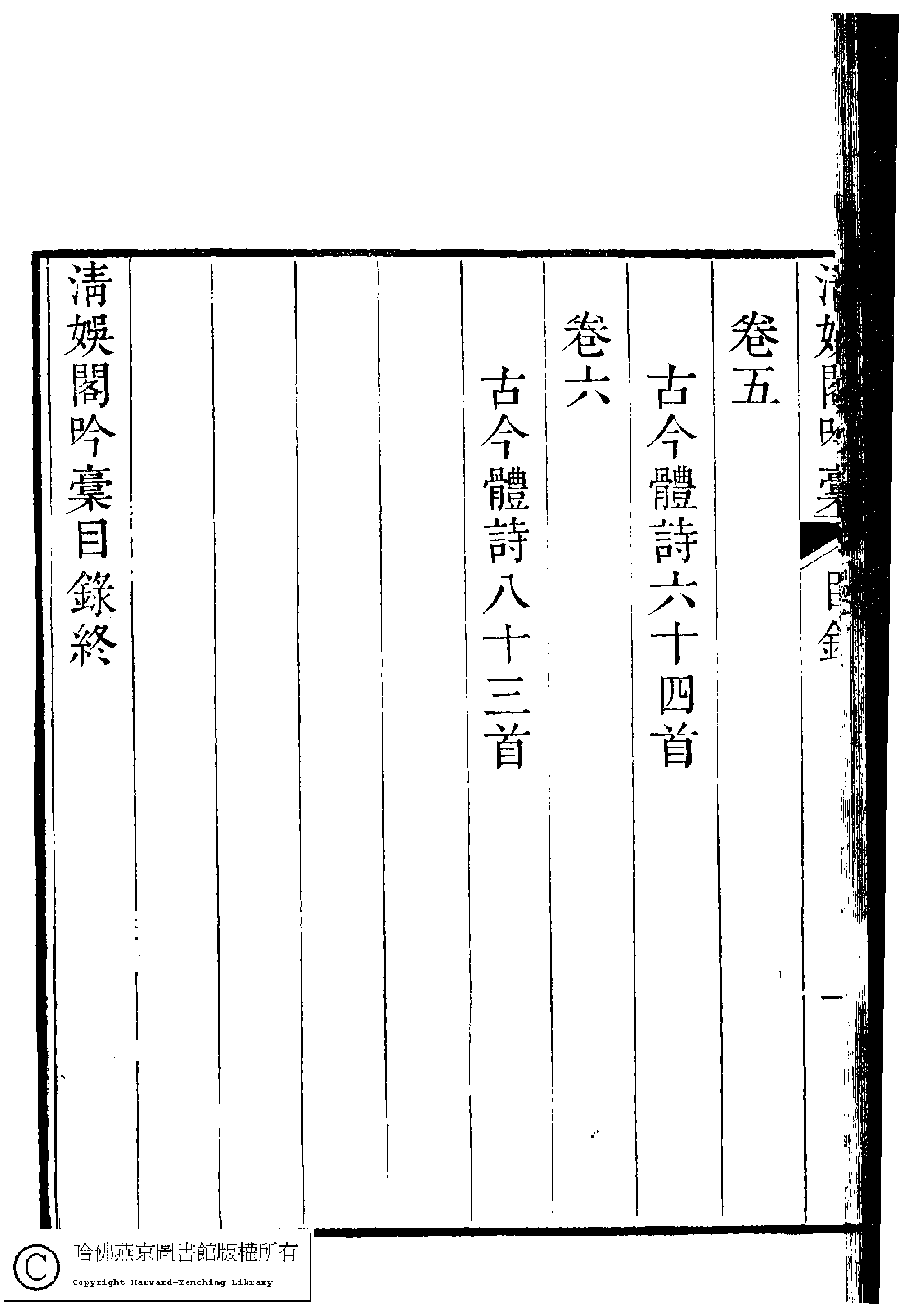 清娛閣吟稾 目錄 一
卷五
古今體詩六十四首
卷六
古今體詩八十三首
清娛閣吟稾目錄終
哈佛燕京圖書館版權所有
Copyright Harvard-Yenching Library